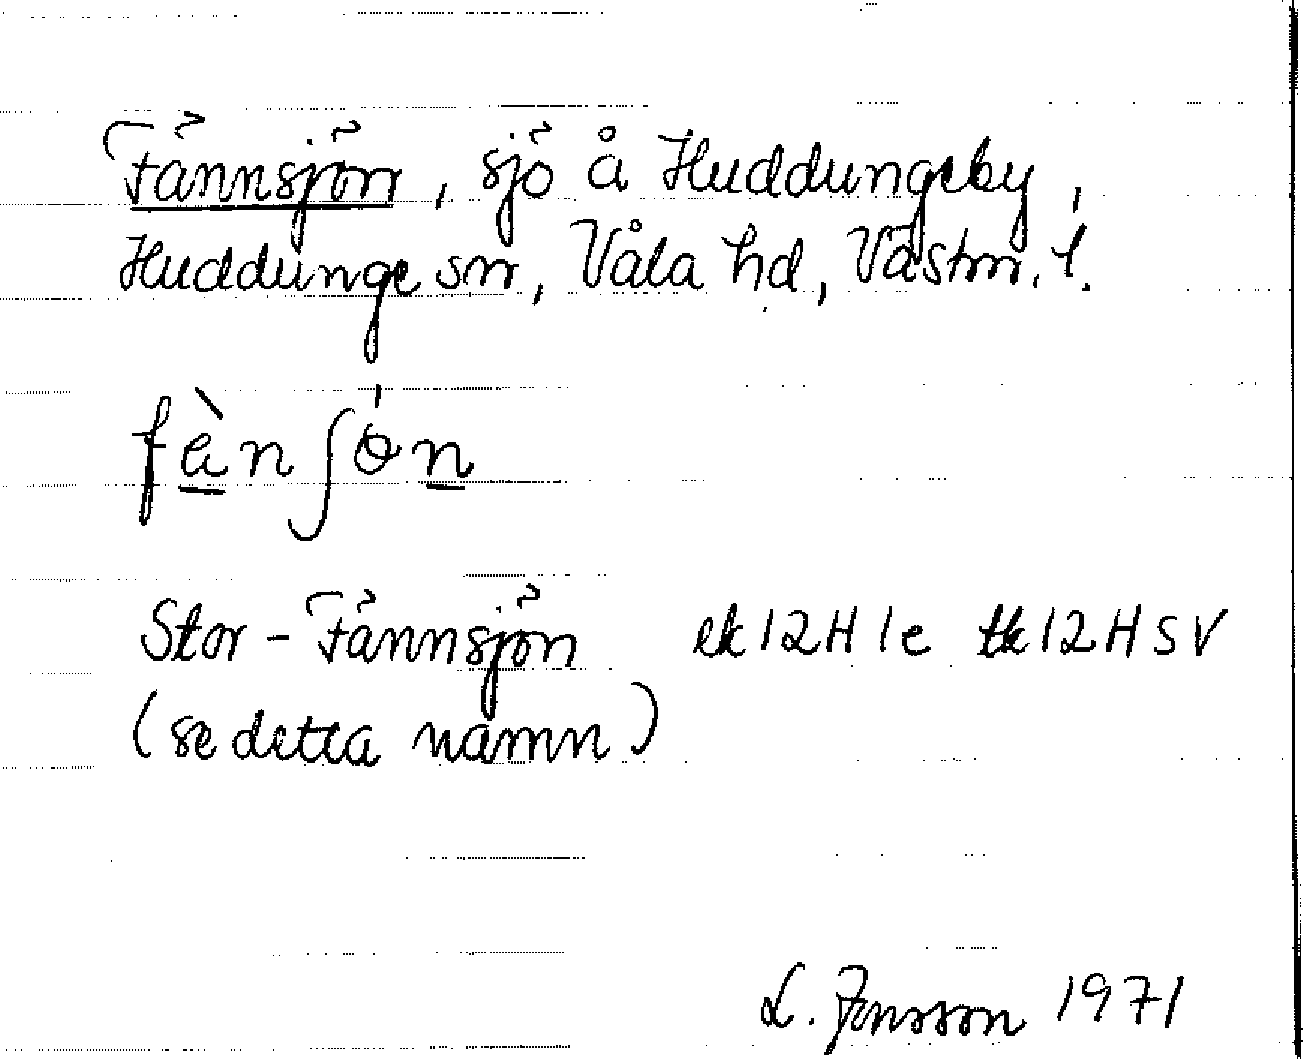 Fännsjön, sjö å Huddungeby,
Huddunge sn, Våla hd, Västm. l.
fæ̀nʃɵ́n
Stor-Fännsjön ek 12H 1e tk 12H SV
(se detta namn)
L. Jonsson 1971